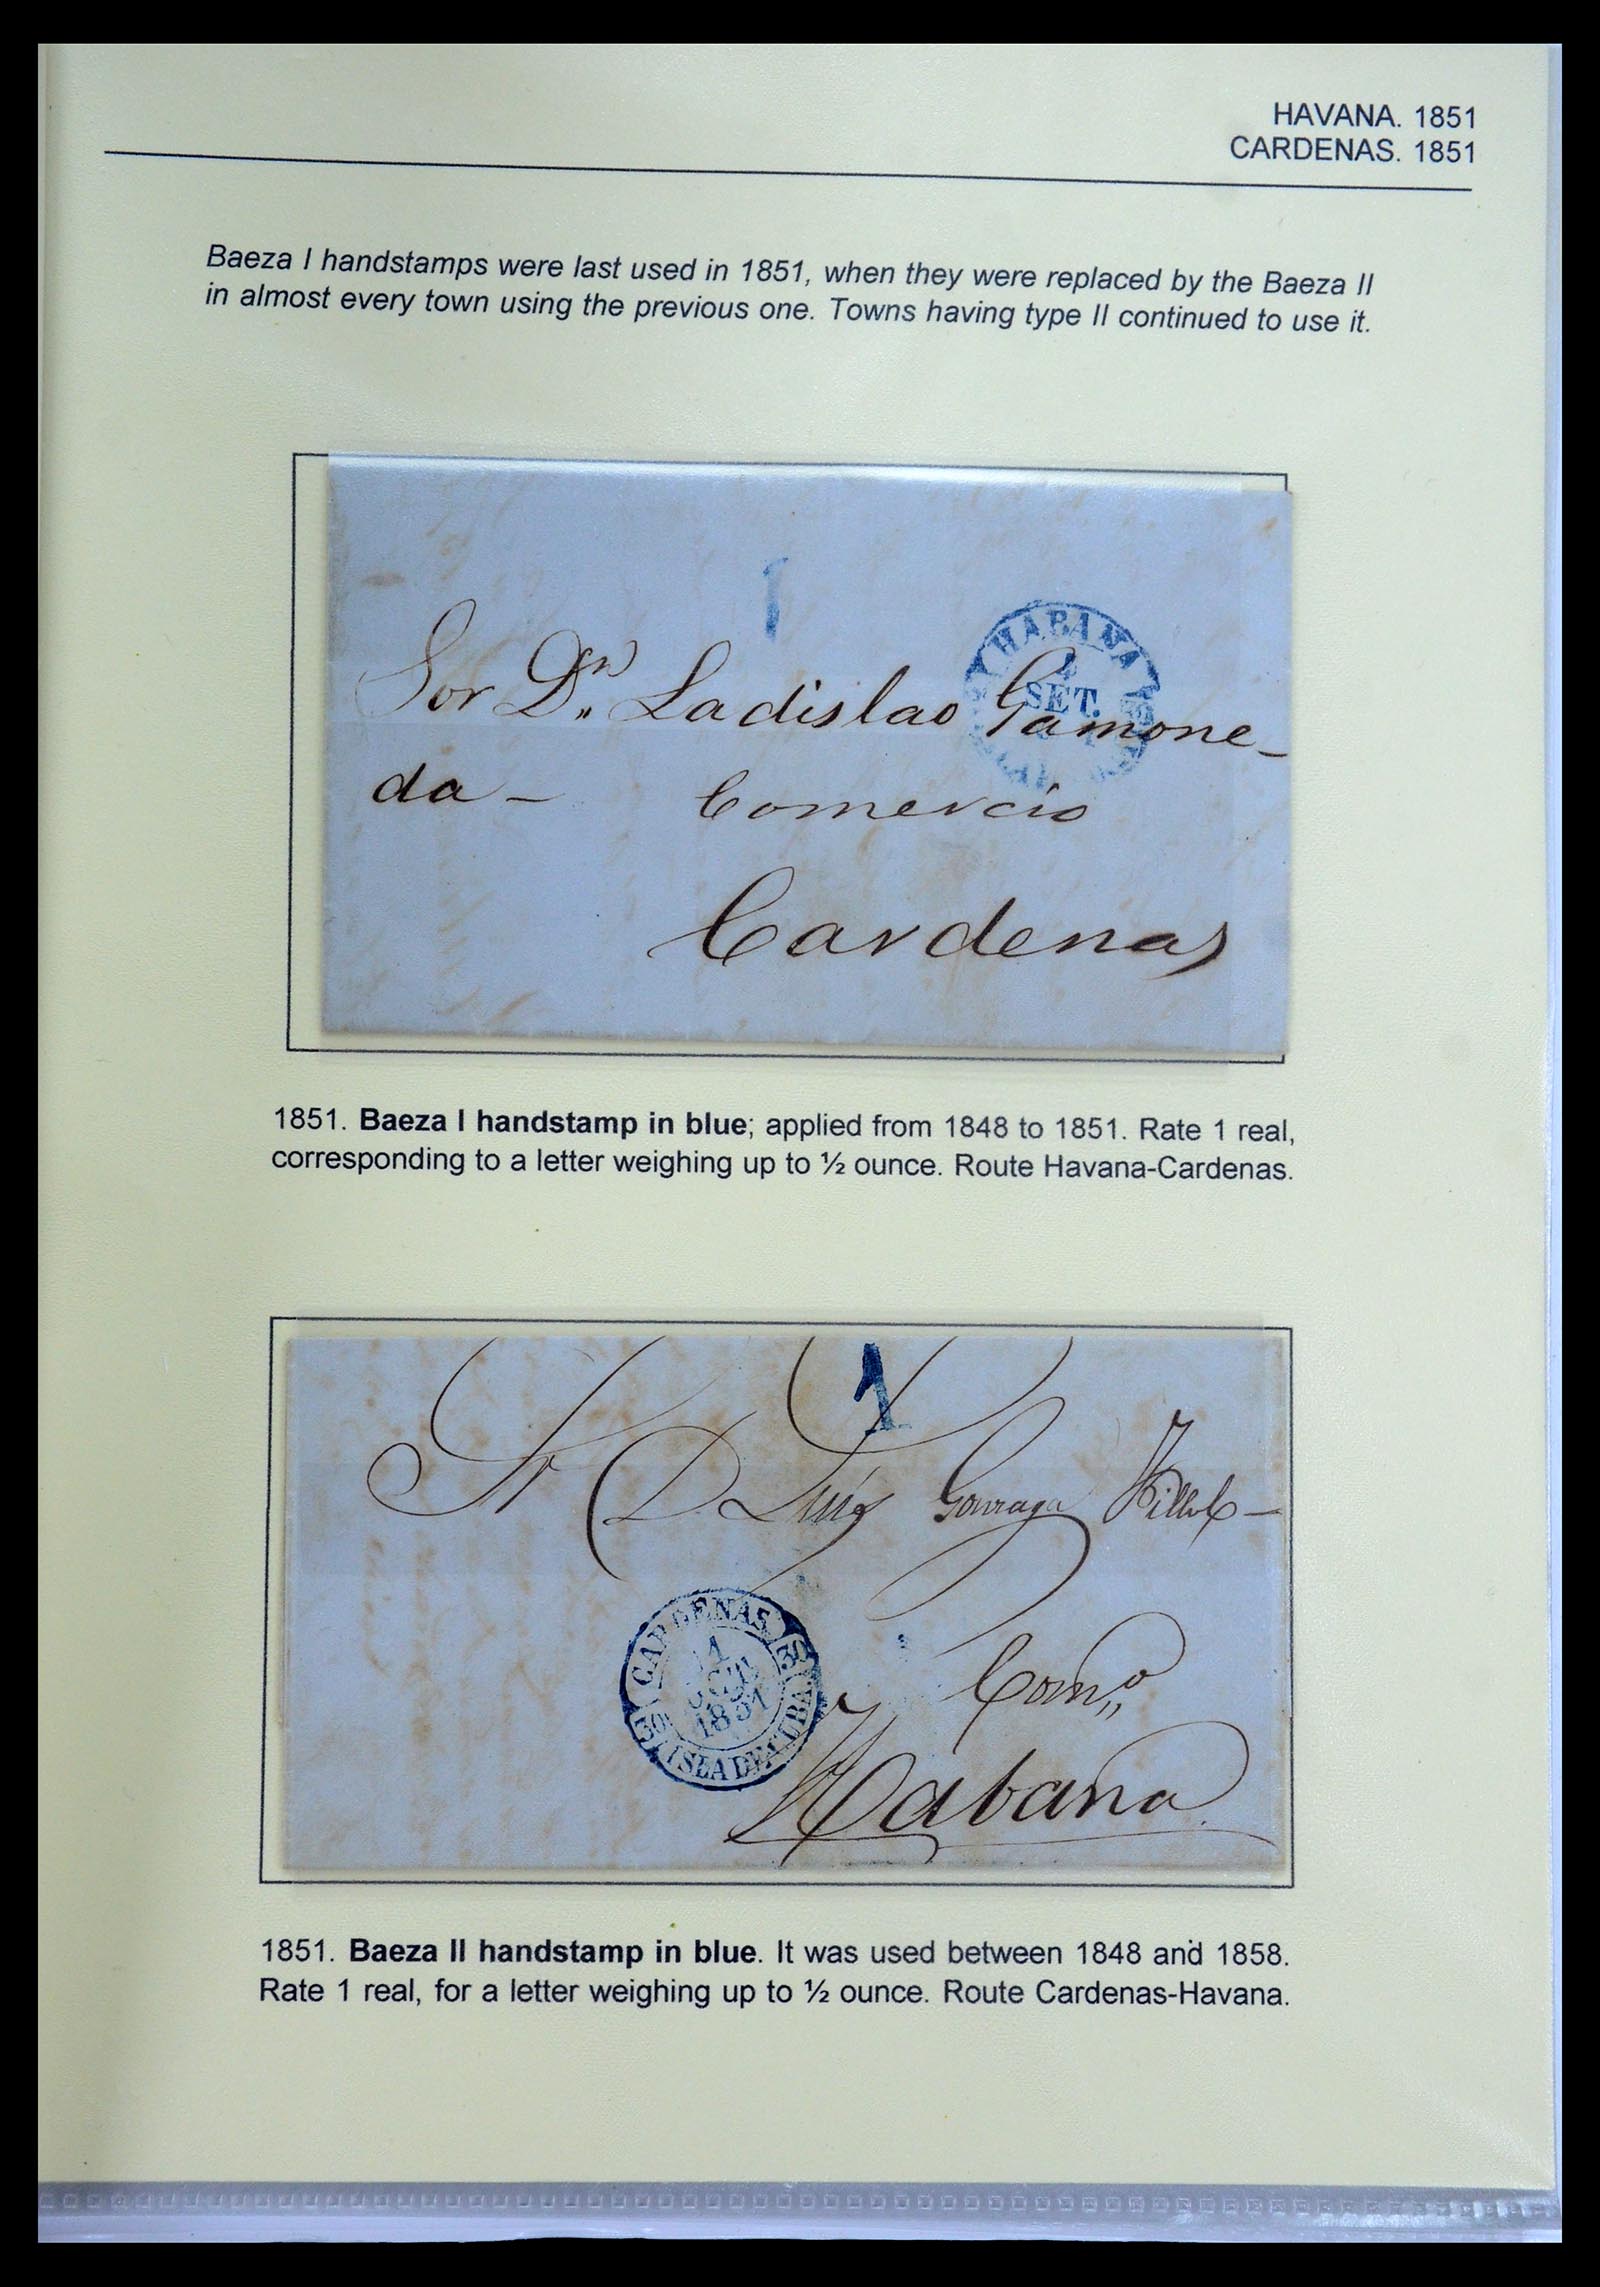 HAVANA. 1851
CARDENAS. 1851
Baeza I handstamps were last used in 1851, when they were replaced by the Baeza II
in almost every town using the previous one. Towns having type II continued to use it.
1
HABANA
SET.
Sor Dn Ladislao Gamone-
da - Comercio
Cardenas
1851. Baeza I handstamp in blue; applied from 1848 to 1851. Rate 1 real,
corresponding to a letter weighing up to ½ ounce. Route Havana-Cardenas.
1
Sr D. Luis Gonzaga
CARDENAS
30
1851
30
ISLA DE CUBA
Como
Habana
1851. Baeza II handstamp in blue. It was used between 1848 and 1858.
Rate 1 real, for a letter weighing up to ½ ounce. Route Cardenas-Havana.